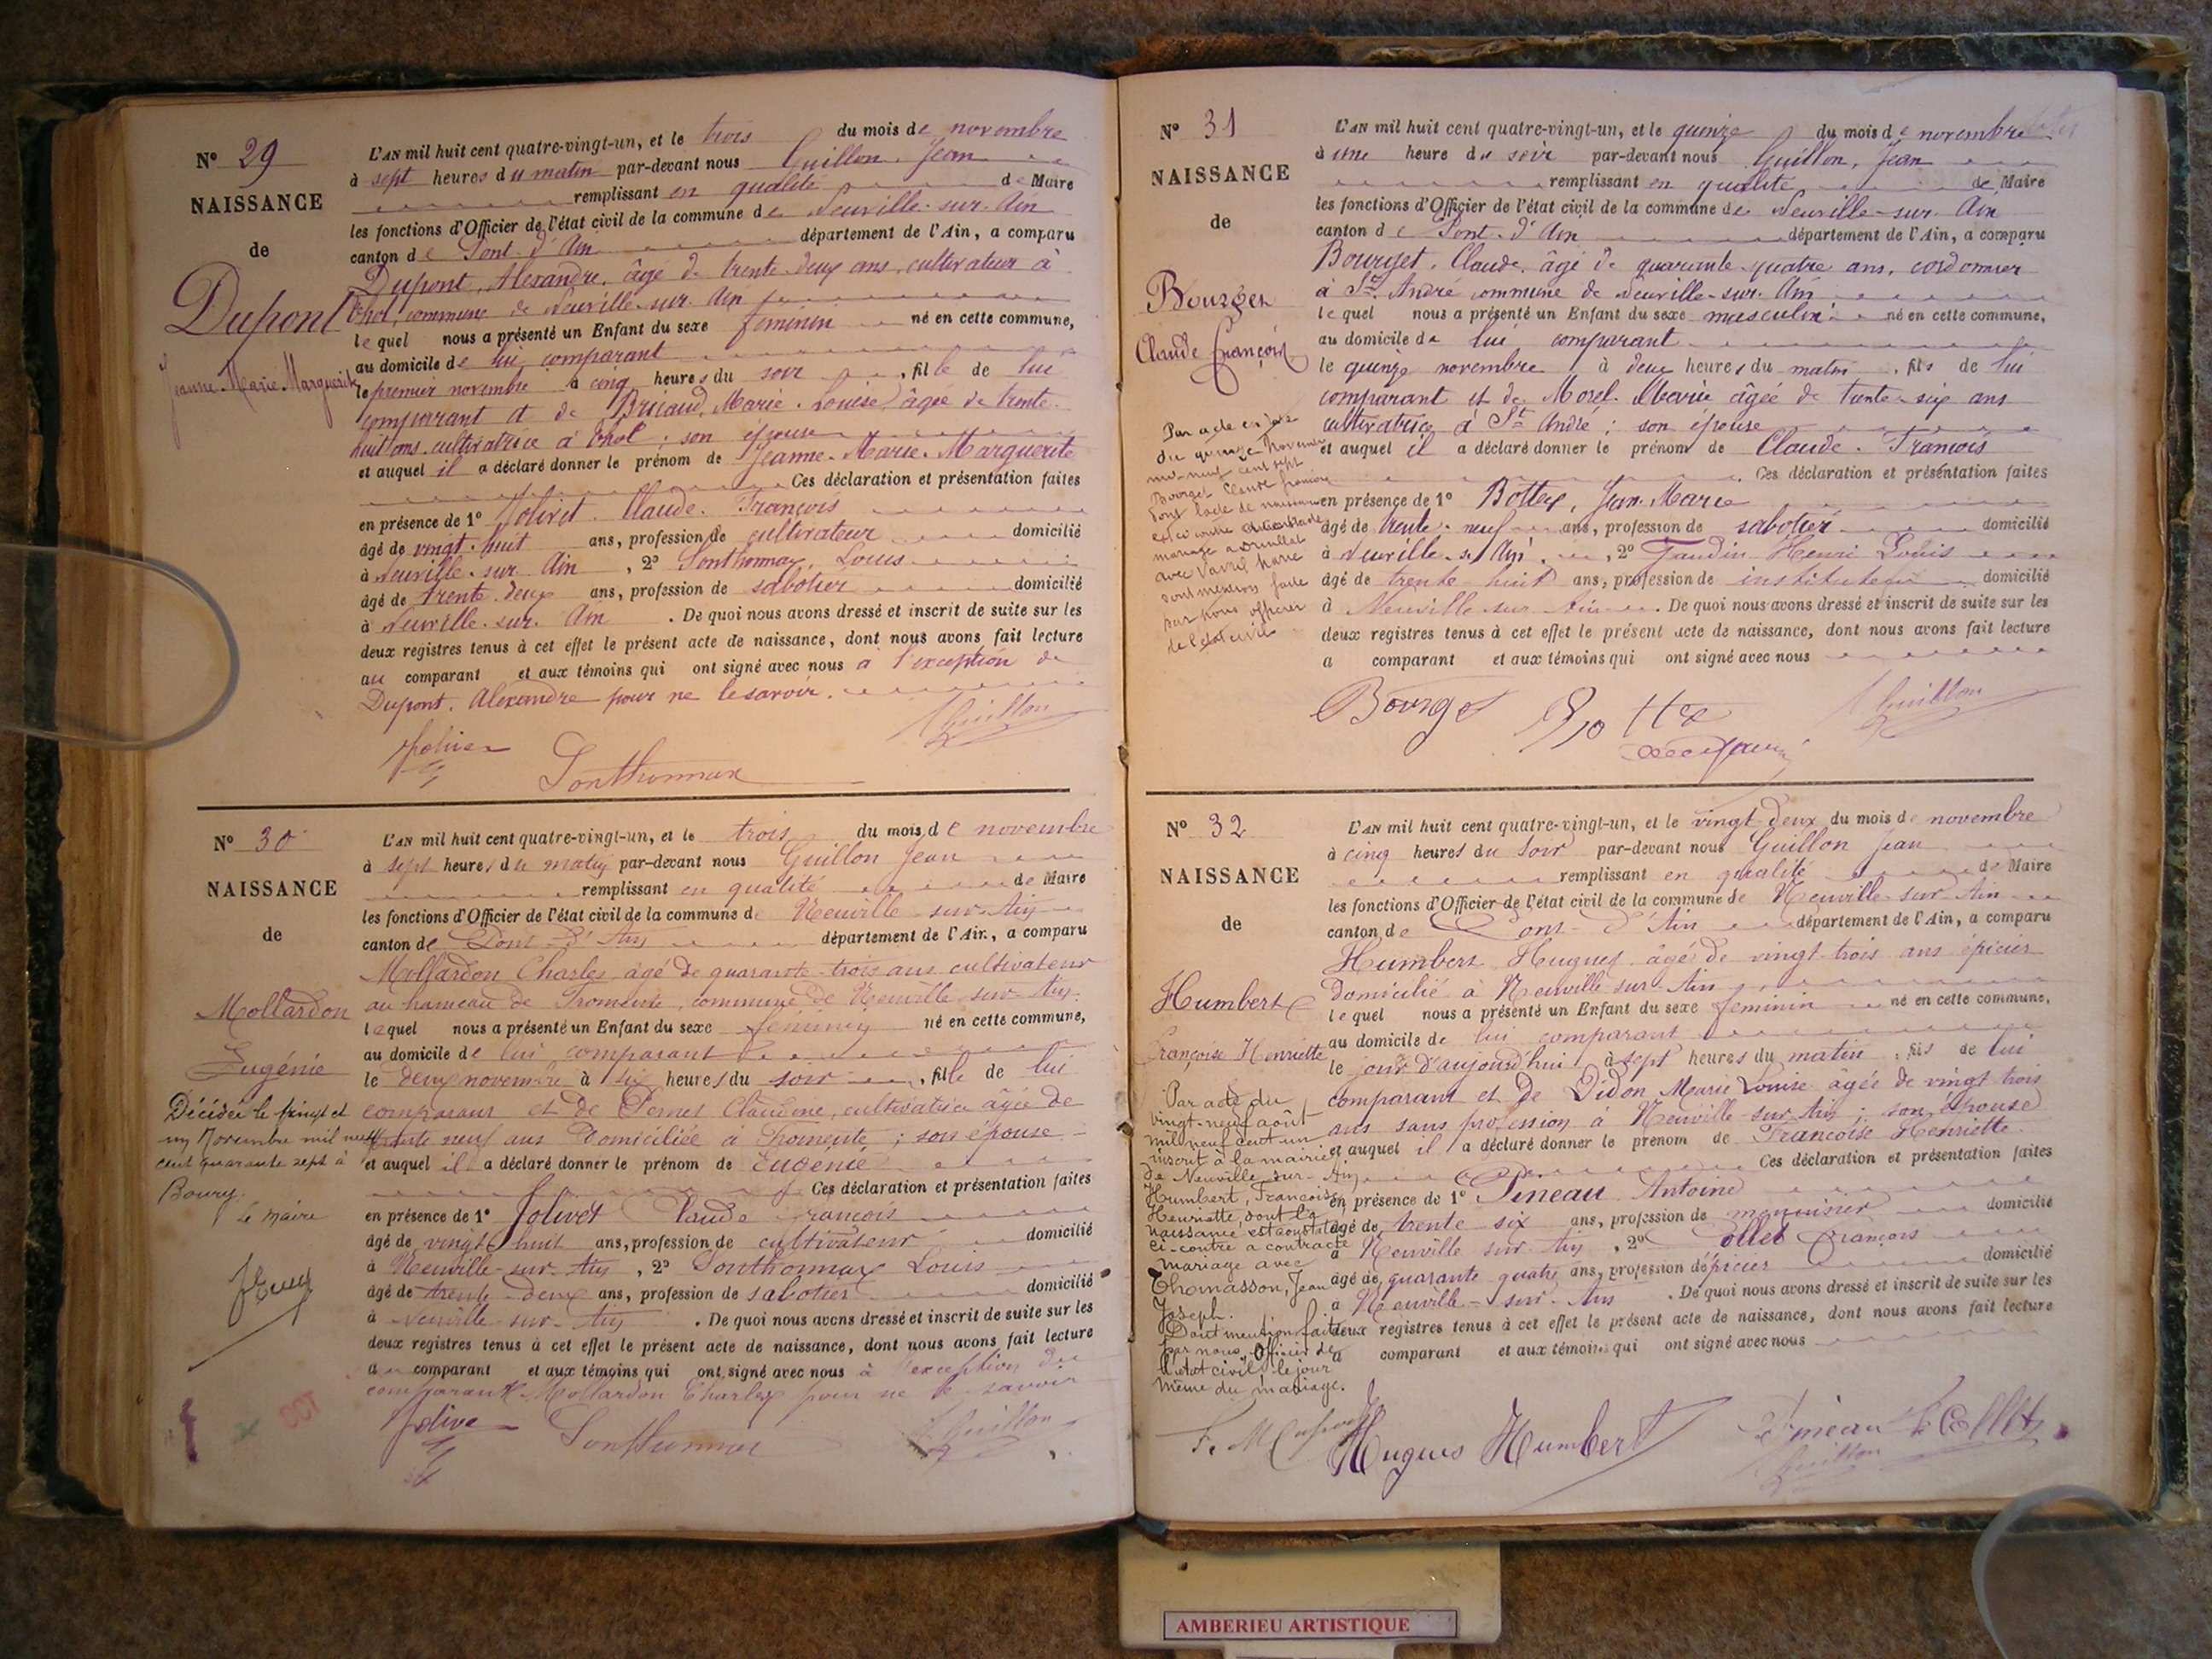 N° 29
NAISSANCE
de
Dupont
Jeanne-Marie-Marguerite
L'AN mil huit cent quatre-vingt-un, et le trois du mois de novembre
à sept heures du matin par-devant nous Guillon, Jean
remplissant en qualité de Maire
les fonctions d'Officier de l'état civil de la commune de Neuville-sur-Ain
canton de Pont-d'Ain département de l'Ain, a comparu
Dupont, Alexandre, âgé de trente-deux ans, cultivateur à
Thol, commune de Neuville-sur-Ain
lequel nous a présenté un Enfant du sexe féminin né en cette commune,
au domicile de lui comparant
le premier novembre à cinq heures du soir, fille de lui
comparant et de Bricaud, Marie-Louise, âgée de trente-
huit ans, cultivatrice à Thol ; son épouse
et auquel il a déclaré donner le prénom de Jeanne-Marie-Marguerite
Ces déclaration et présentation faites
en présence de 1° Jolivet, Claude-François
âgé de vingt-huit ans, profession de cultivateur domicilié
à Neuville-sur-Ain, 2° Sonthonnax, Louis
âgé de trente-deux ans, profession de sabotier domicilié
à Neuville-sur-Ain. De quoi nous avons dressé et inscrit de suite sur les
deux registres tenus à cet effet le présent acte de naissance, dont nous avons fait lecture
au comparant et aux témoins qui ont signé avec nous à l'exception de
Dupont, Alexandre pour ne le savoir.
Guillon
Sonthonnax
N° 30
NAISSANCE
de
Mollardon
Eugénie
Décédée le vingt et
un Novembre mil neuf
cent quarante sept à
Bourg.
Le maire
L'AN mil huit cent quatre-vingt-un, et le trois du mois de novembre
à sept heures du matin par-devant nous Guillon Jean
remplissant en qualité de Maire
les fonctions d'Officier de l'état civil de la commune de Neuville-sur-Ain
canton de Pont-d'Ain département de l'Ain, a comparu
Mollardon Charles âgé de quarante-trois ans cultivateur
au hameau de Fromente, commune de Neuville-sur-Ain
lequel nous a présenté un Enfant du sexe féminin né en cette commune,
au domicile de lui comparant
le deux novembre à six heures du soir, fille de lui
comparant et de Pernet Claudine, cultivatrice âgée de
trente neuf ans domiciliée à Fromente ; son épouse
et auquel il a déclaré donner le prénom de Eugénie
Ces déclaration et présentation faites
en présence de 1° Jolivet Claude François
âgé de vingt huit ans, profession de cultivateur domicilié
à Neuville-sur-Ain, 2° Sonthonnax Louis
âgé de trente-deux ans, profession de sabotier domicilié
à Neuville-sur-Ain. De quoi nous avons dressé et inscrit de suite sur les
deux registres tenus à cet effet le présent acte de naissance, dont nous avons fait lecture
au comparant et aux témoins qui ont signé avec nous à l'exception du
comparant Mollardon Charles pour ne le savoir
Jolivet
Sonthonnax
Guillon
OCT
N° 31
NAISSANCE
de
Bourget
Claude François
Par acte en date
du quinze Novembre
mil-neuf cent sept
Bourget Claude François
dont l'acte de naissance
est ci contre a contracté
mariage à Druillat
avec
dont mention faite
par nous officier
de l'état civil
L'AN mil huit cent quatre-vingt-un, et le quinze du mois de novembre
à une heure du soir par-devant nous Guillon, Jean
remplissant en qualité de Maire
les fonctions d'Officier de l'état civil de la commune de Neuville-sur-Ain
canton de Pont-d'Ain département de l'Ain, a comparu
Bourget, Claude, âgé de quarante-quatre ans, cordonnier
à St André commune de Neuville-sur-Ain
lequel nous a présenté un Enfant du sexe masculin né en cette commune,
au domicile de lui comparant
le quinze novembre à deux heures du matin, fils de lui
comparant et de Morel, Marie âgée de trente-six ans
cultivatrice à St André ; son épouse
et auquel il a déclaré donner le prénom de Claude-François
Ces déclaration et présentation faites
en présence de 1° Bottex, Jean-Marie
âgé de trente-neuf ans, profession de sabotier domicilié
à Neuville-s/Ain, 2° Gaudin Henri Louis
âgé de trente huit ans, profession de instituteur domicilié
à Neuville-sur-Ain. De quoi nous avons dressé et inscrit de suite sur les
deux registres tenus à cet effet le présent acte de naissance, dont nous avons fait lecture
a comparant et aux témoins qui ont signé avec nous
Bourget
Bottex
Guillon
N° 32
NAISSANCE
de
Humbert
Françoise Henriette
Par acte du
vingt-neuf août
mil neuf cent un
inscrit à la mairie
de Neuville-sur-Ain
Humbert, Françoise
Henriette, dont la
naissance est constatée
ci-contre a contracté
mariage avec
Thomasson, Jean
Joseph.
Dont mention faite
par nous, Officier de
l'état civil le jour
même du mariage.
L'AN mil huit cent quatre-vingt-un, et le vingt deux du mois de novembre
à cinq heures du soir par-devant nous Guillon Jean
remplissant en qualité de Maire
les fonctions d'Officier de l'état civil de la commune de Neuville-sur-Ain
canton de Pont-d'Ain département de l'Ain, a comparu
Humbert Hugues âgé de vingt-trois ans épicier
domicilié à Neuville sur Ain
lequel nous a présenté un Enfant du sexe féminin né en cette commune,
au domicile de lui comparant
le jour d'aujourd'hui à sept heures du matin, fils de lui
comparant et de Didon Marie Louise âgée de vingt trois
ans sans profession à Neuville-sur-Ain ; son épouse
et auquel il a déclaré donner le prénom de Françoise Henriette
Ces déclaration et présentation faites
en présence de 1° Pineau Antoine
âgé de trente six ans, profession de menuisier domicilié
à Neuville sur Ain, 2° Collet François
âgé de quarante quatre ans, profession d'épicier domicilié
à Neuville-sur-Ain. De quoi nous avons dressé et inscrit de suite sur les
deux registres tenus à cet effet le présent acte de naissance, dont nous avons fait lecture
a comparant et aux témoins qui ont signé avec nous
Hugues Humbert
Pineau F. Collet
Guillon
AMBERIEU ARTISTIQUE